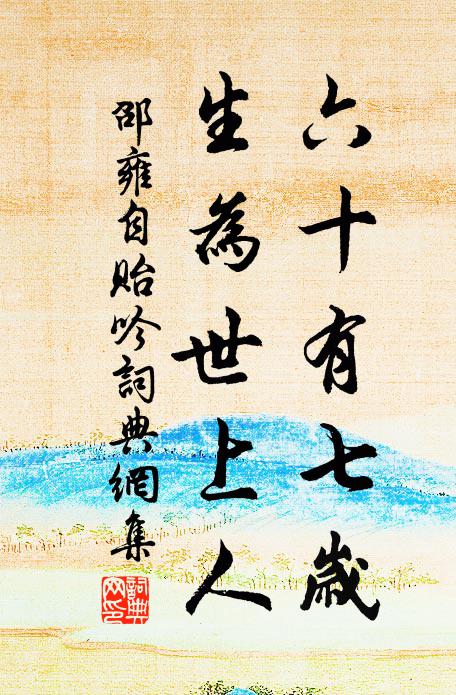 六十有七歲
生為世上人
邵雍自貽吟詞典網集